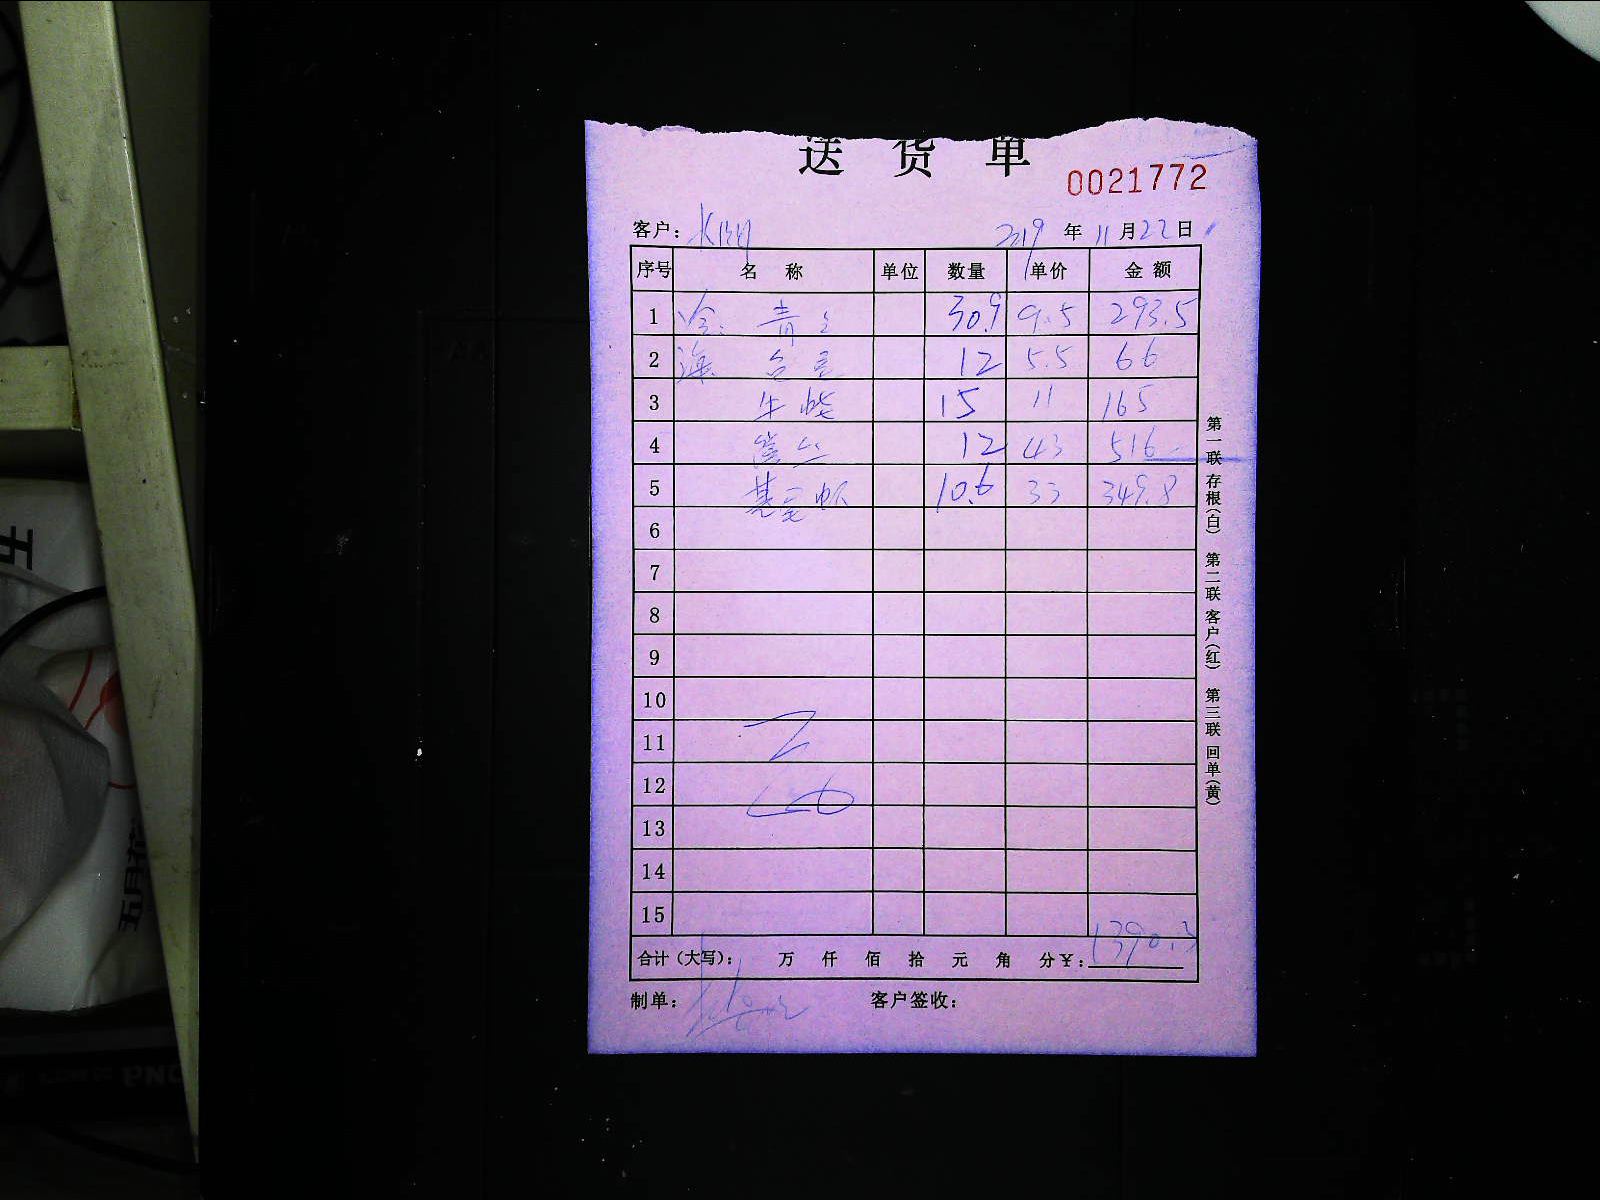 送货单
0021772
客户： 2019年11月22日
序号 名称 单位 数量 单价 金额
1 冷 青 30.9 9.5 293.5
2 海 12 5.5 66
3 牛 15 11 165
4 12 43 516
5 基围虾 10.6 33 349.8
6
7
8
9
10
11
12
13
14
15
合计（大写）： 万 仟 佰 拾 元 角 分￥：1390.3
制单： 客户签收：
第一联 存根（白） 第二联 客户（红） 第三联 回单（黄）
五